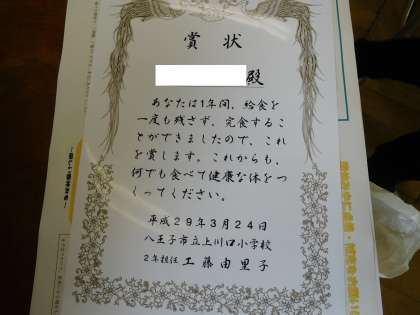 賞状
殿
あなたは1年間、給食を
一度も残さず、完食するこ
とができましたので、これ
を賞します。これからも、
何でも食べて健康な体をつ
くってください。
平成29年3月24日
八王子市立上川口小学校
2年担任 工藤由里子